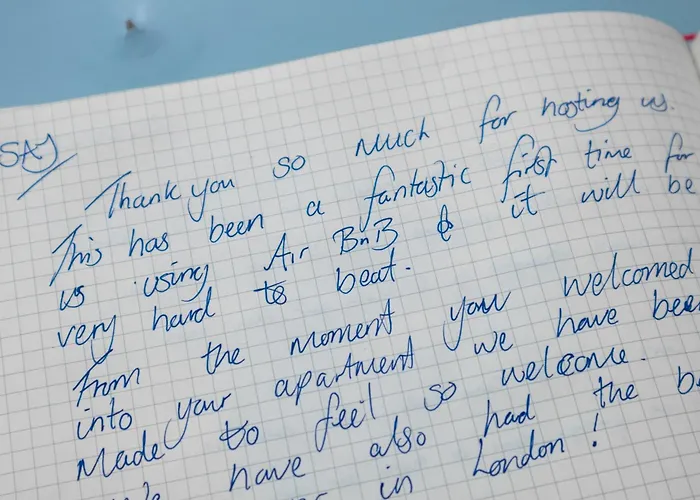 SAJ
Thank you so much for hosting us.
This has been a fantastic first time for
us using Air BnB & it will be
very hard to beat.
From the moment you welcomed
into your apartment we have been
Made to feel so welcome.
have also had the
in London!